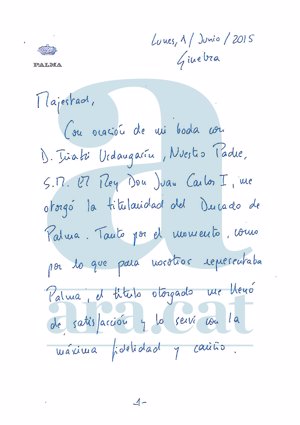 Lunes, 1/Junio/2015
Ginebra
PALMA
Majestad,
Con ocasión de mi boda con
D. Iñaki Urdangarín, Nuestro Padre,
S.M. El Rey Don Juan Carlos I, me
otorgó la titularidad del Ducado de
Palma. Tanto por el momento, como
por lo que para nosotros representaba
Palma, el título otorgado me llenó
de satisfacción y lo serví con la
máxima fidelidad y cariño.
a
ara.cat
1-